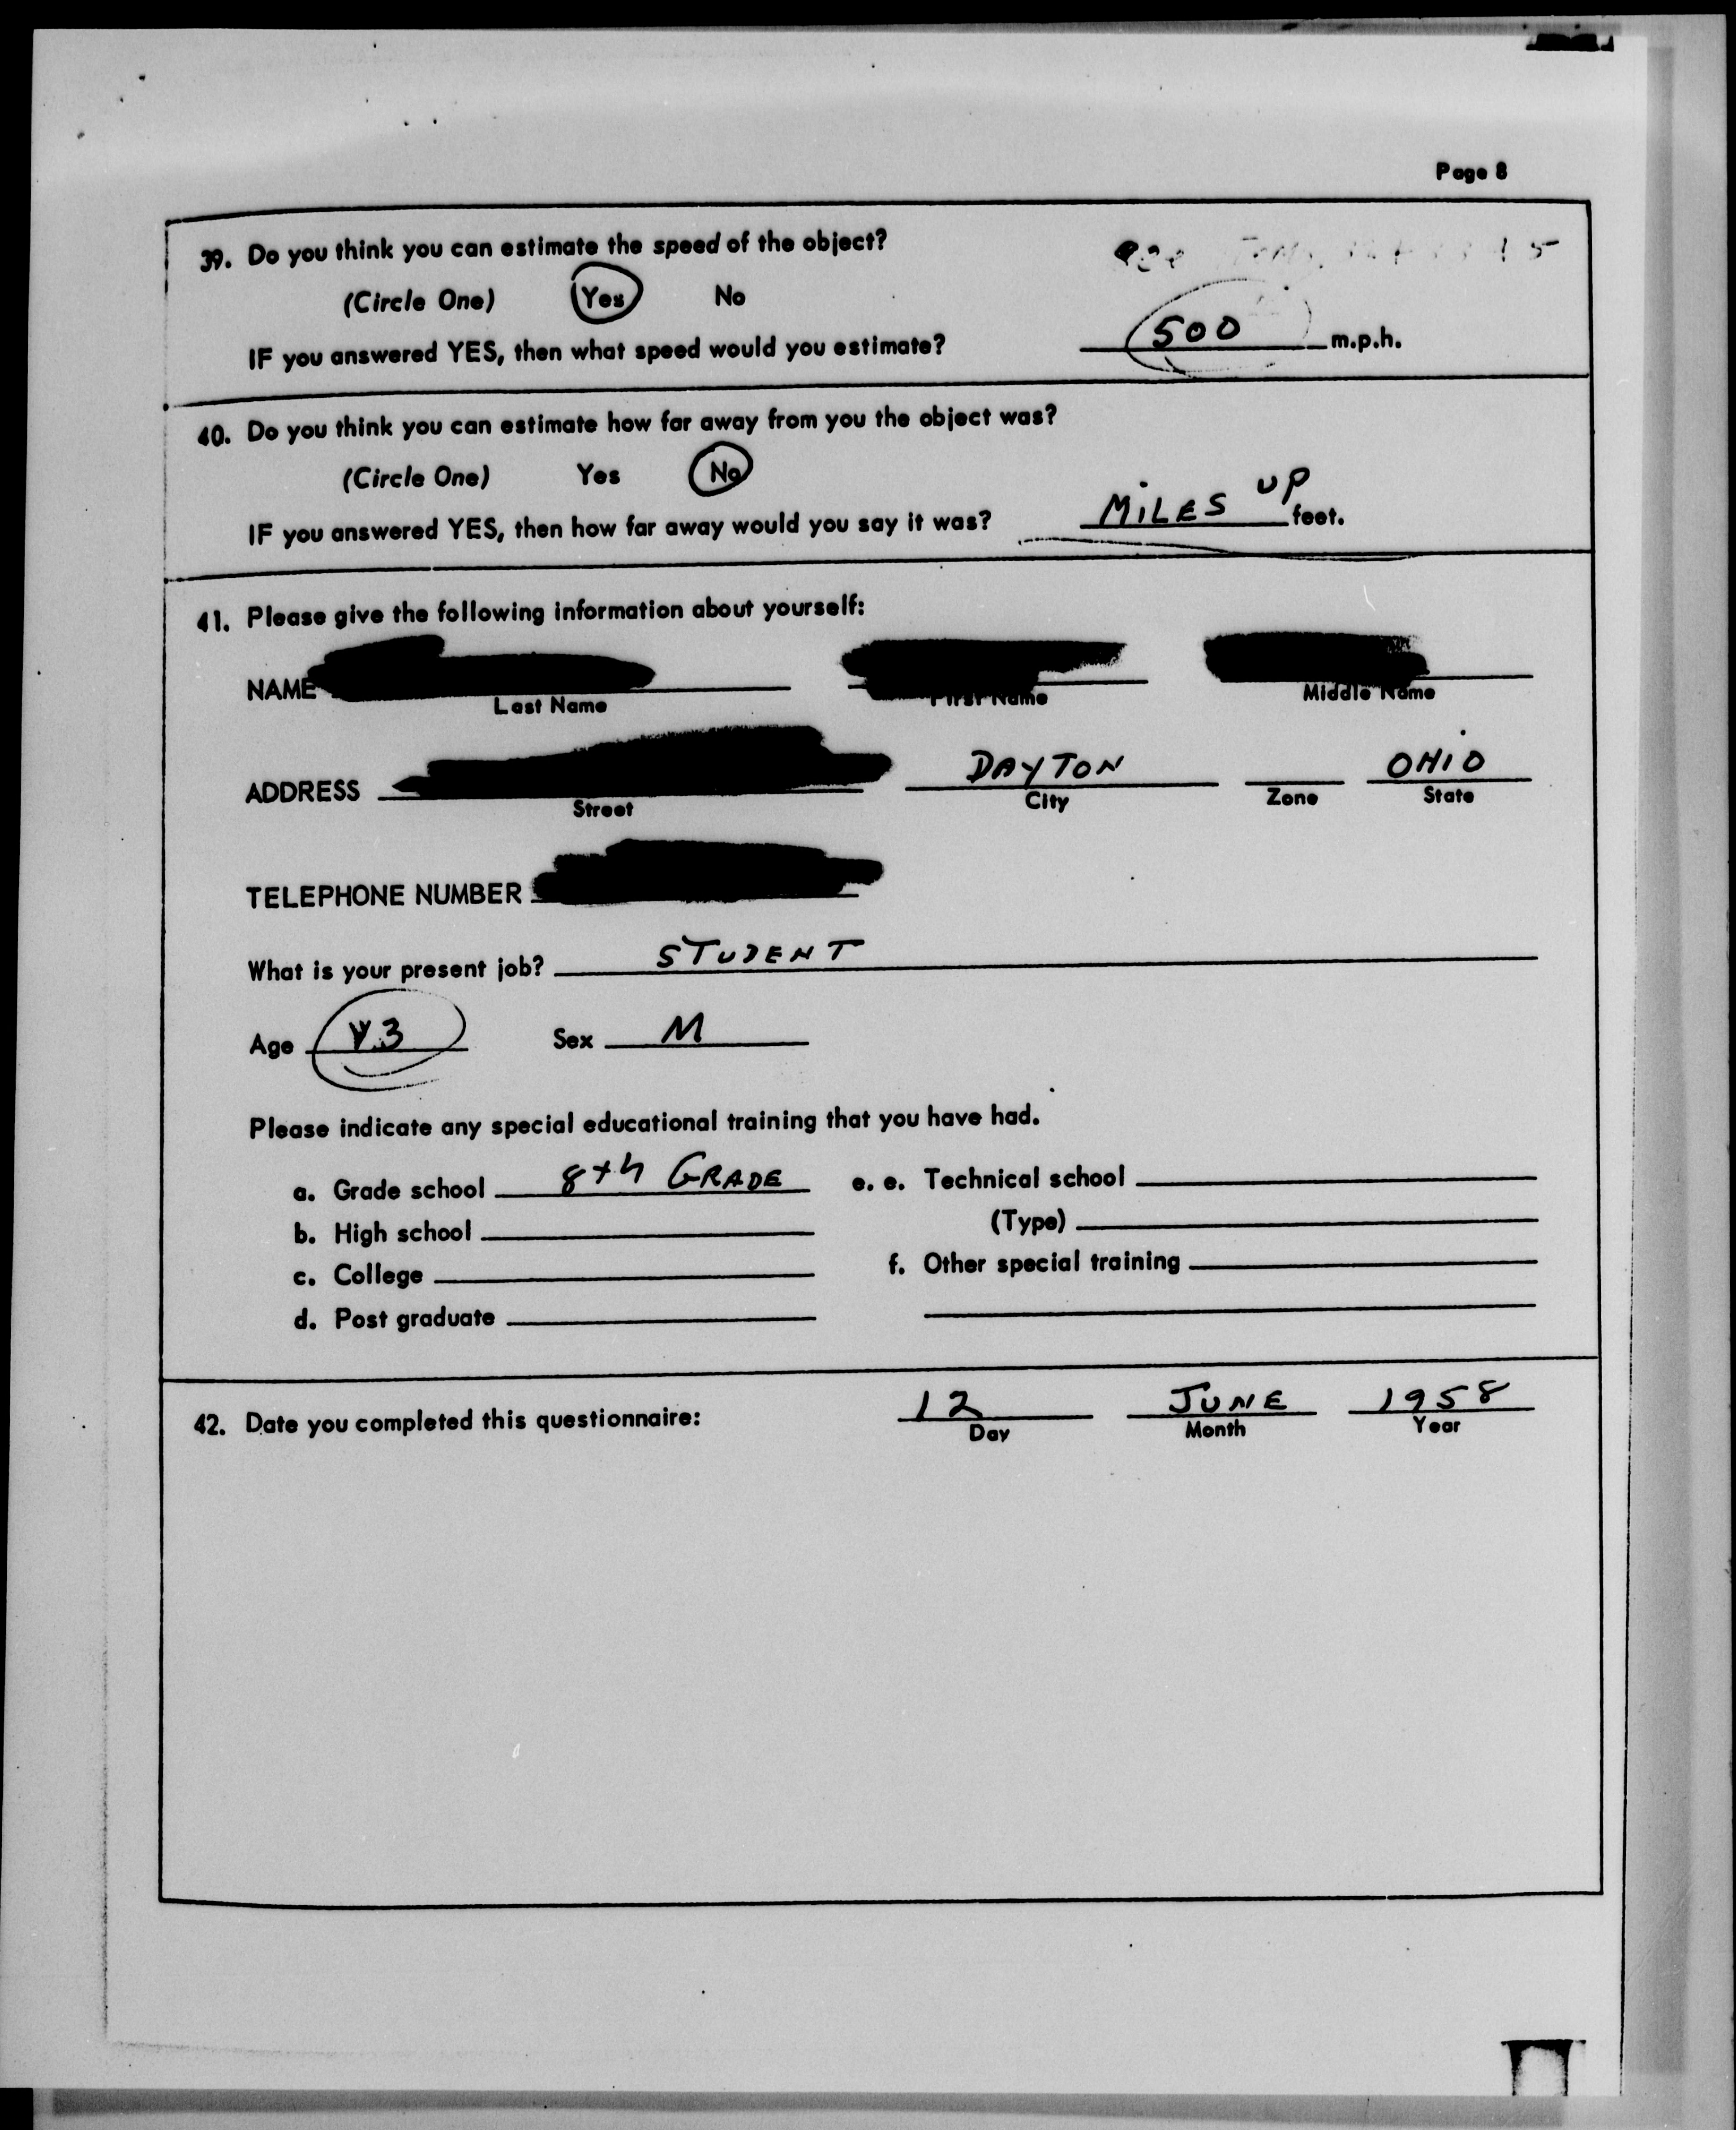 Page 8
39. Do you think you can estimate the speed of the object?
(Circle One) Yes No
IF you answered YES, then what speed would you estimate? 500 m.p.h.
40. Do you think you can estimate how far away from you the object was?
(Circle One) Yes No
IF you answered YES, then how far away would you say it was? MILES UP feet.
41. Please give the following information about yourself:
NAME
Last Name First Name Middle Name
ADDRESS DAYTON OHIO
Street City Zone State
TELEPHONE NUMBER
What is your present job? STUDENT
Age Sex M
Please indicate any special educational training that you have had.
a. Grade school 8th GRADE e. e. Technical school
b. High school (Type)
c. College f. Other special training
d. Post graduate
42. Date you completed this questionnaire: 12 JUNE 1958
Day Month Year